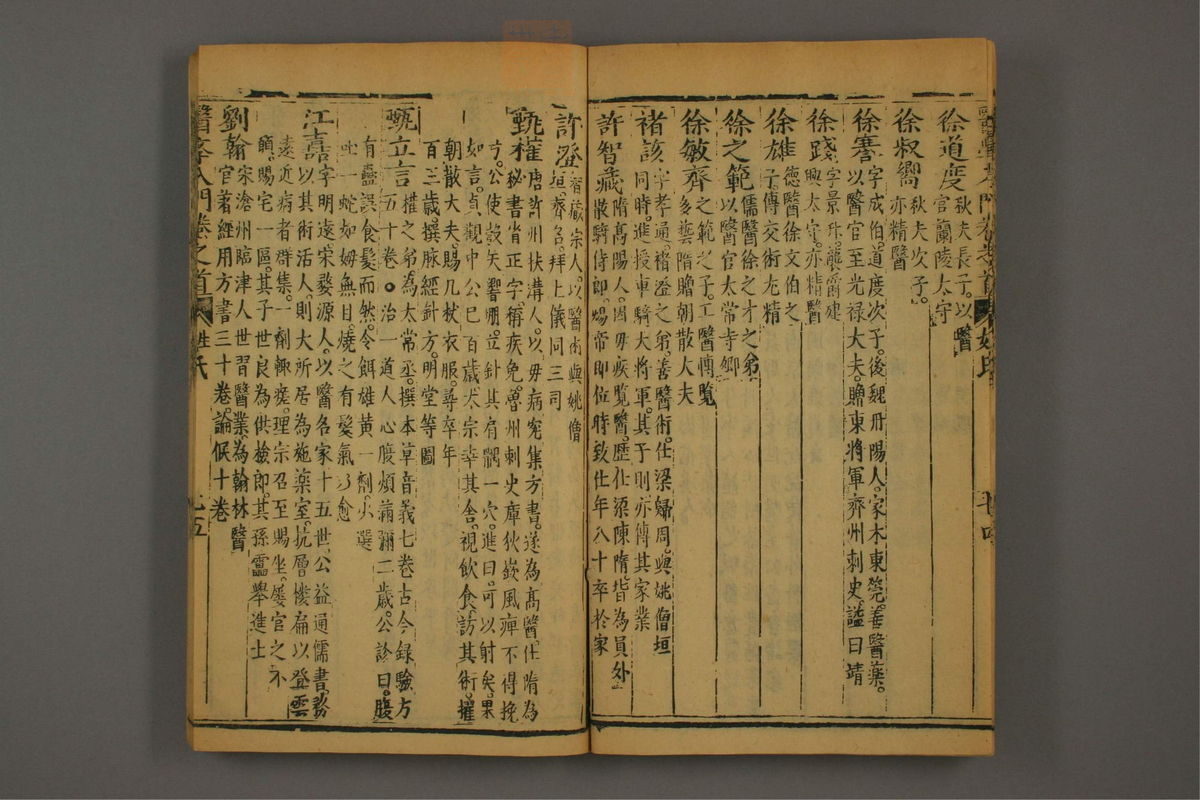 徐道度 秋夫長子。以醫
官蘭陵太守
徐叔嚮 秋夫次子。
亦精醫
徐謇 字成伯。道度次子。後魏丹陽人。家本東莞。善醫藥。
以醫官至光禄大夫。贈東將軍齊州刺史。謚曰靖
徐踐 字景升。襲爵建
興太守。亦精醫
徐雄 德醫徐文伯之
子。傳交術尤精
徐之範 儒醫徐之才之弟
以醫官太常寺卿
徐敏齊 之範之子。工醫博覽
多藝隋贈朝散大夫
褚該 字孝通。褚澄之弟。善醫術。仕梁歸周。與姚僧垣
同時。進授車騎大將軍。其子則亦傳其家業
許智藏 隋高陽人。因母疾覧醫。歷仕梁陳隋。皆為員外
散騎侍郎。煬帝即位時致仕年八十卒於家
許澄 智藏宗人。以醫術與姚僧
垣。齊名拜上儀同三司
甄權 唐許州扶溝人。以母病究集方書。遂為高醫。仕隋為
秘書省正字。稱疾免。魯州刺史庫狄嶔風痺不得挽
弓。公使彀矢嚮堋。立針其肩髃一穴。進曰。可以射矣。果
如言。貞觀中公已百歲太宗幸其舍。視飲食。訪其術。擢
朝散大夫。賜几杖衣服。尋卒年
百三歲撰脉經針方。明堂等圖
甄立言 權之弟。為太常丞。撰本草音義七卷古今録驗方
五十卷。治一道人心腹煩滿彌二歲。公診曰。腹
有蠱誤食髮而然。令餌雄黄一劑。少選
吐一蛇如姆無目。燒之有髮氣乃愈
江嘉 字明遠。宋婺源人。以醫名家十五世。公益通儒書。務
以其術活人。則大所居為施藥室。抗層楼扁以登雲
遠近病者群集。一劑輒瘥。理宗召至賜坐。屡官之不
願。賜宅一區。其子世良為供檢郎。其孫靁舉進士
劉翰 宋滄州臨津人世習醫業。為翰林醫
官著經用方書三十卷。論候十卷
醫學入門卷之首 姓氏 七五